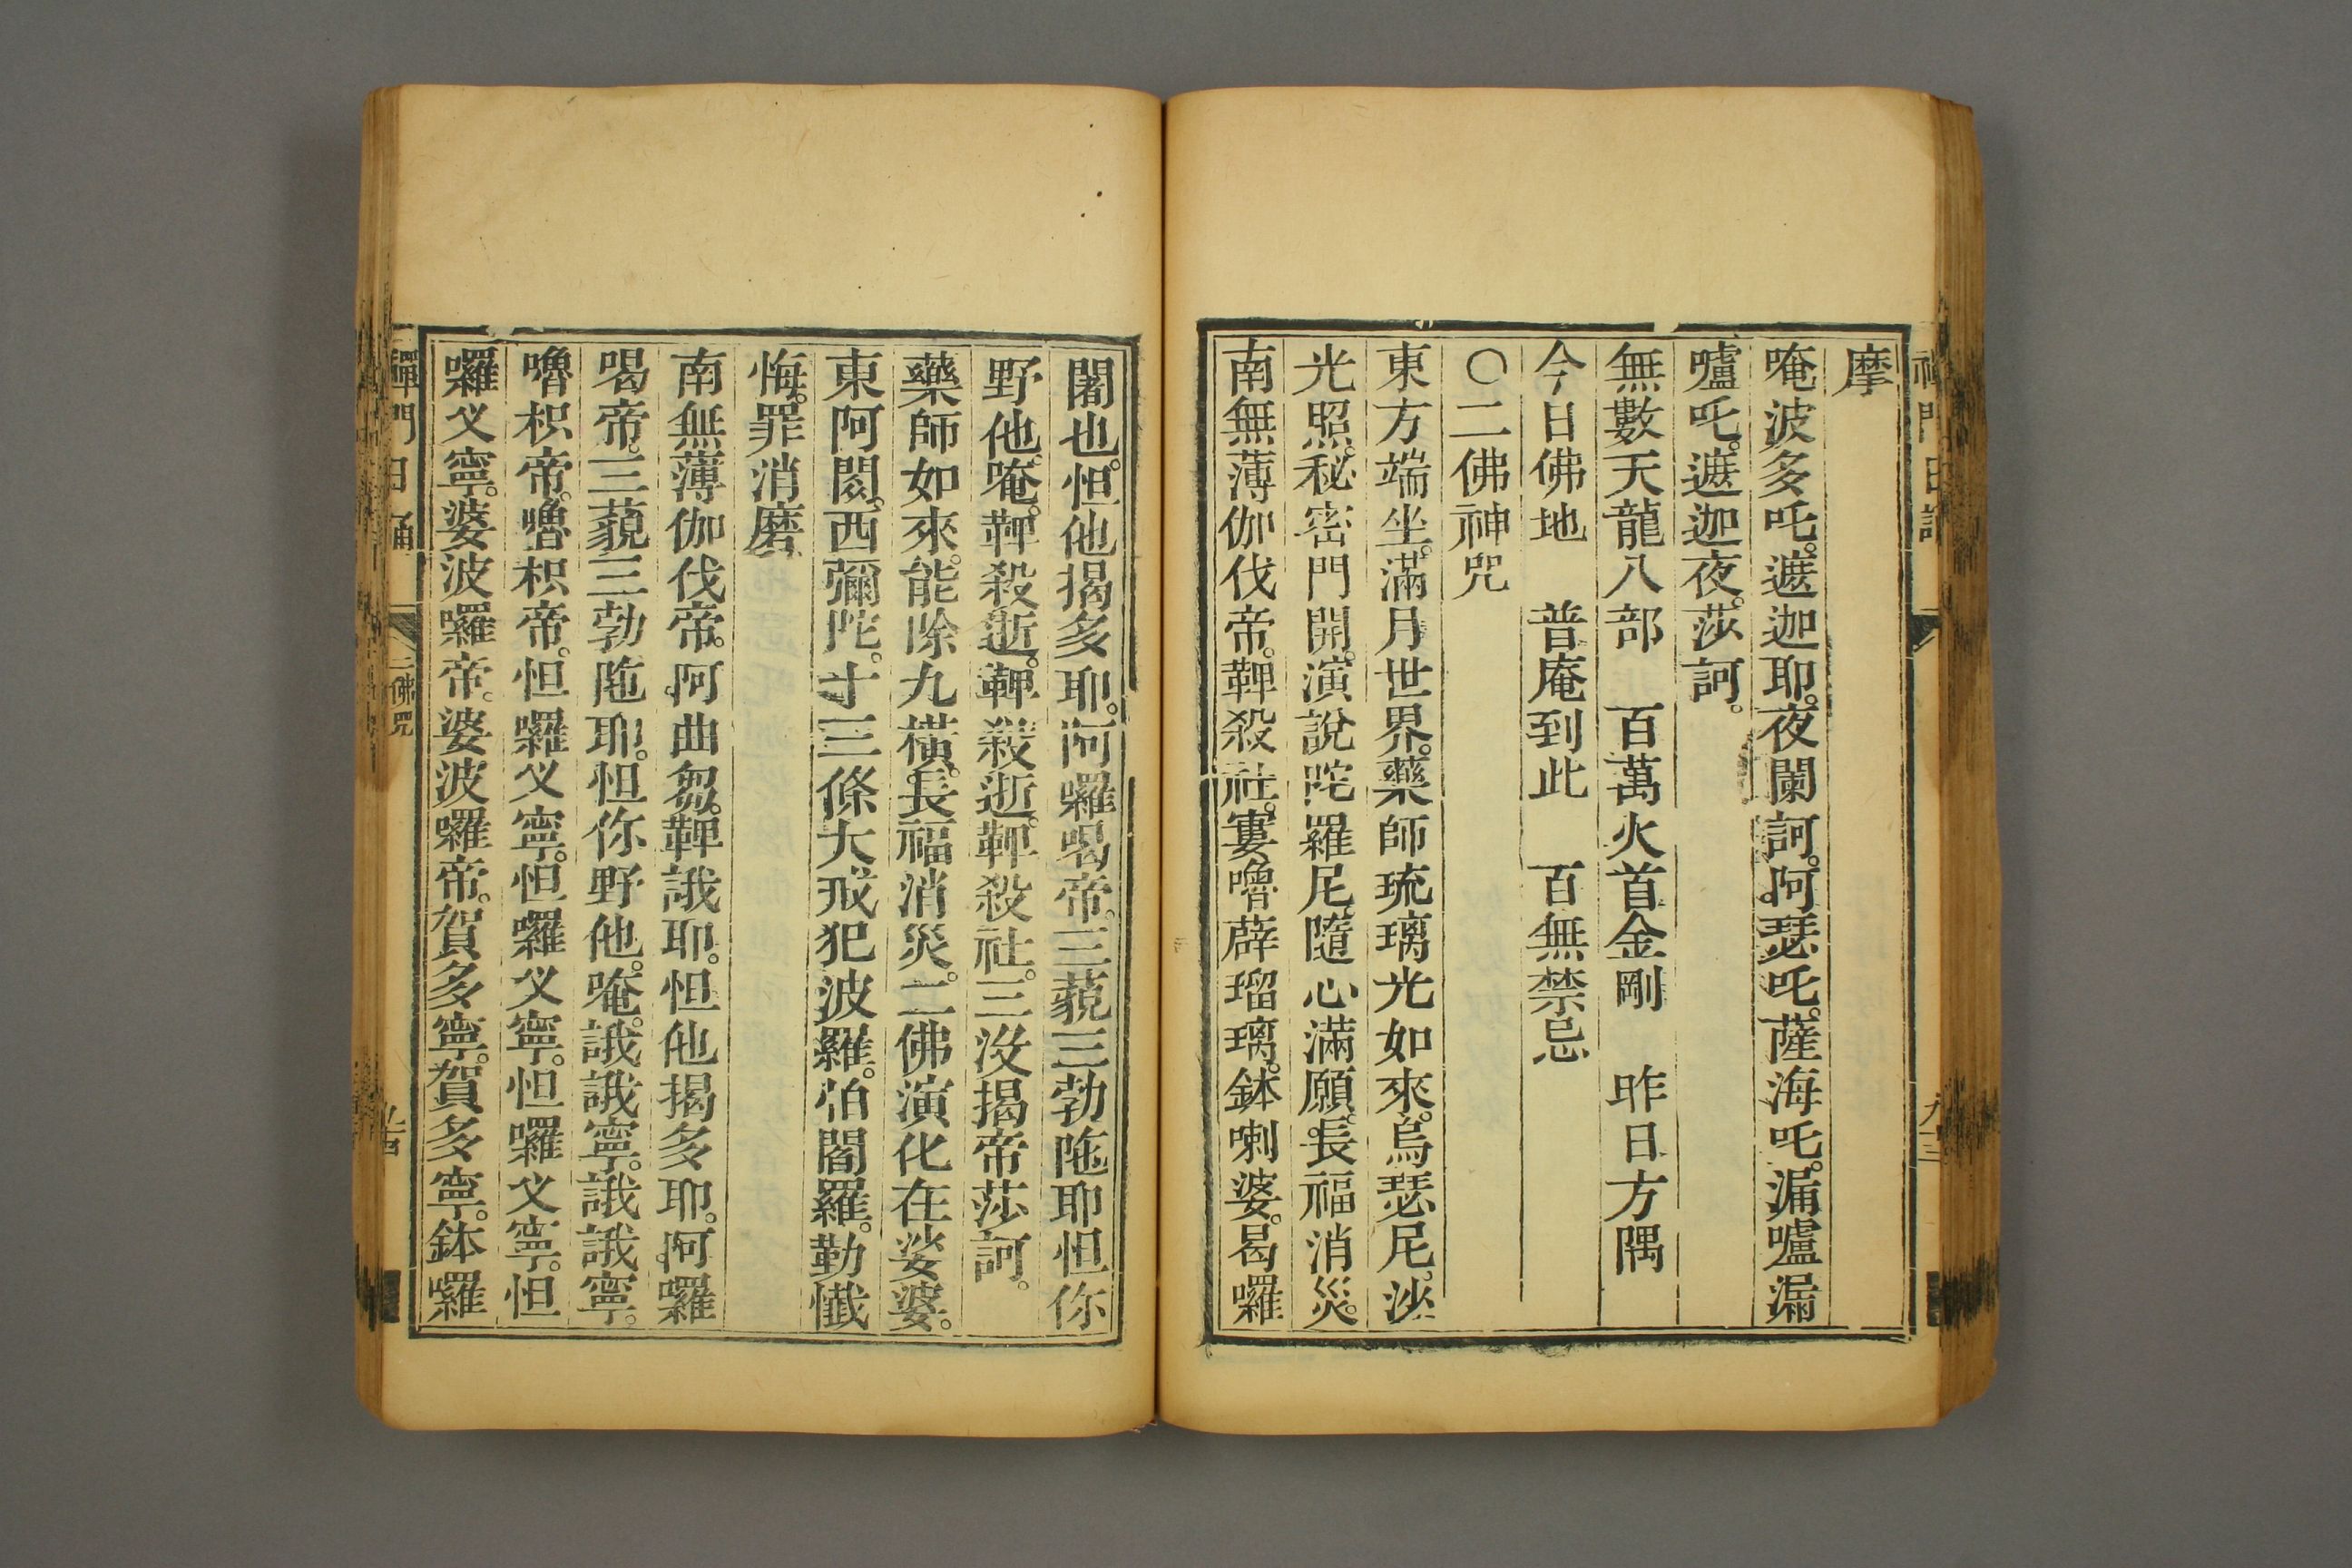 摩
唵波多吒。遮迦耶。夜闌訶。阿瑟吒。薩海吒。漏嚧漏
嚧吒。遮迦夜。莎訶。
無數天龍八部 百萬火首金剛 昨日方隅
今日佛地 普庵到此 百無禁忌
○二佛神咒
東方端坐。滿月世界。藥師琉璃光如來。烏瑟尼。沙
光照。秘密門開。演說陀羅尼。隨心滿願。長福消災。
南無薄伽伐帝。鞞殺社。窶嚕薜瑠璃。鉢喇婆。曷囉
闍也。怛他揭多耶。阿囉喝帝。三藐三勃陁耶怛你
野他。唵。鞞殺逝。鞞殺逝。鞞殺社。三沒揭帝莎訶。
藥師如來。能除九橫。長福消災。二佛演化在娑婆。
東阿閦。西彌陀。寸三條大戒犯波羅。怕閻羅。勤懺
悔。罪消磨
南無薄伽伐帝。阿曲芻。鞞誐耶。怛他揭多耶。阿囉
喝帝。三藐三勃陁耶。怛你野他。唵。誐誐寧。誐誐寧。
嚕枳帝。嚕枳帝。怛囉义寧。怛囉义寧。怛囉义寧。怛
囉义寧。婆波囉帝。婆波囉帝。賀多寧。賀多寧。鉢囉
禪門日誦 二佛咒